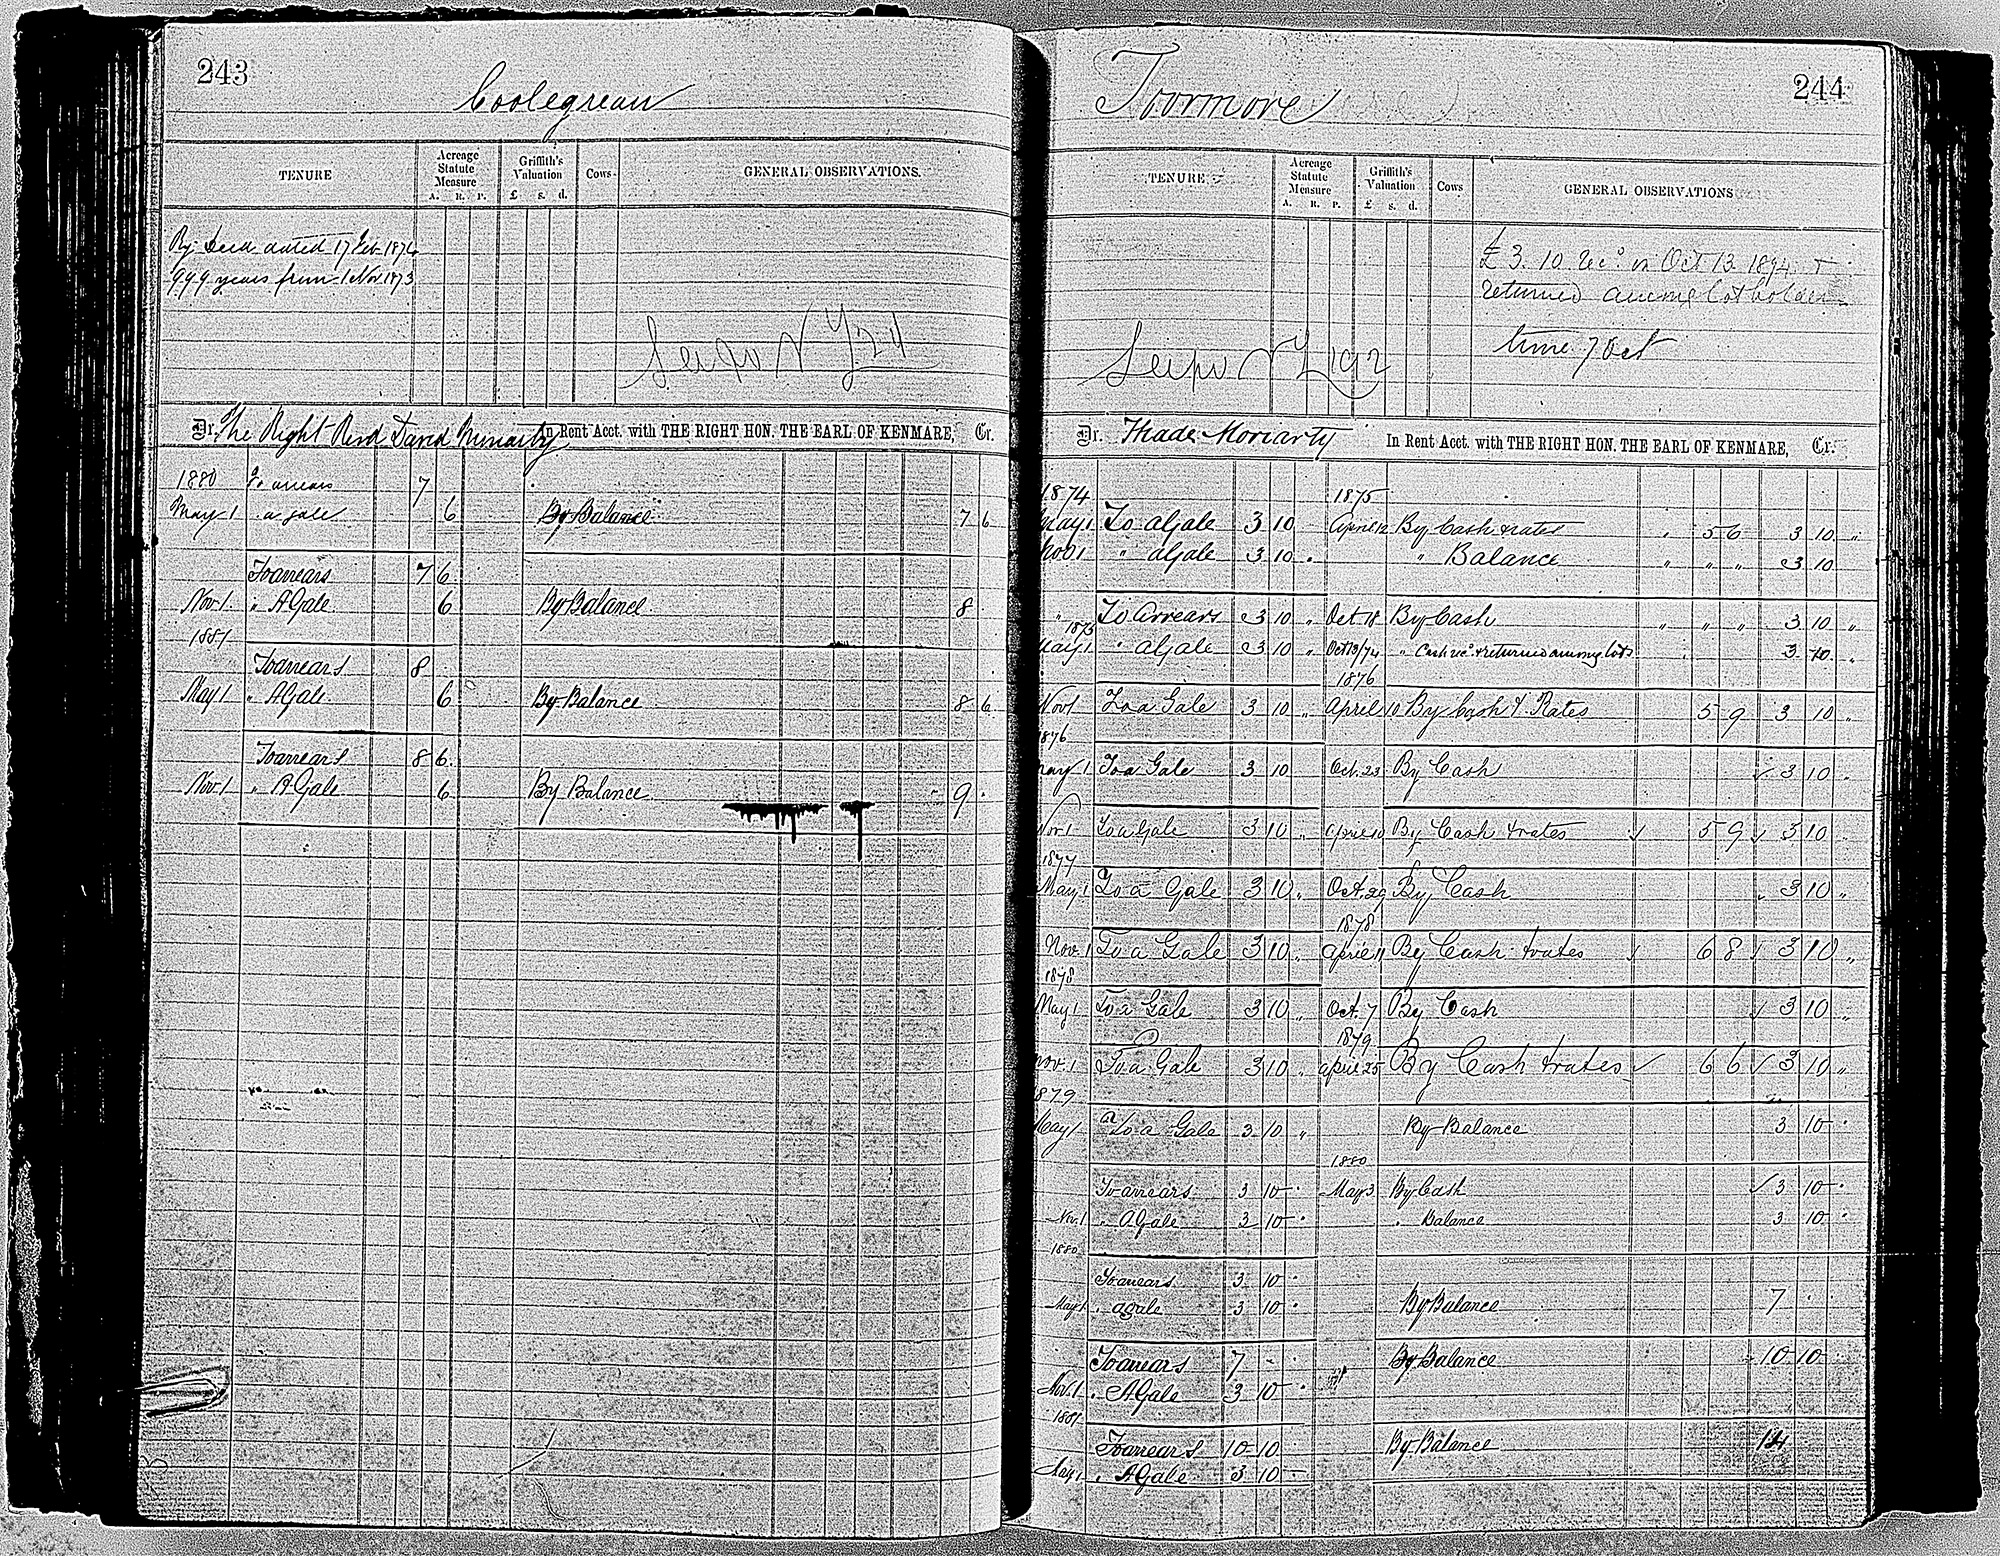 243
Coolegrean
TENURE
Acreage Statute Measure
A. R. P.
Griffith's Valuation
£ s. d.
Cows
GENERAL OBSERVATIONS.
By Deed dated 17 Feb 1874
999 years from 1 Nov 1873
Dr. The Right Revd David Moriarty In Rent Acct. with THE RIGHT HON. THE EARL OF KENMARE, Cr.
1880 To arrears 7
May 1 " a gale 6 By Balance 7 6
To arrears 7 6
Nov 1. " A Gale 6 By Balance 8
1881
To arrears 8
May 1 " A Gale 6 By Balance 8 6
To arrears 8 6
Nov. 1 " A Gale 6 By Balance 9
244
Toormore
TENURE
Acreage Statute Measure
A. R. P.
Griffith's Valuation
£ s. d.
Cows
GENERAL OBSERVATIONS
£3. 10 rec. on Oct 13 1894 +
returned among lot holders
time 7 Oct
Dr. Thade Moriarty In Rent Acct. with THE RIGHT HON. THE EARL OF KENMARE, Cr.
1874 1875
May 1 To a Gale 3 10 April 12 By Cash & rates " 5 6 3 10 "
Nov 1 " a Gale 3 10 " " Balance " " " 3 10
" To Arrears 3 10 " Oct 18 By Cash " " " 3 10 "
1875
May 1 " a Gale 3 10 " Oct 13/74 " Cash rec. & returned among lots 3 10 "
1876
Nov 1 To a Gale 3 10 " April 10 By Cash & Rates 5 9 3 10 "
1876
May 1 To a Gale 3 10 Oct. 23 By Cash ✓ 3 10 "
Nov 1 To a Gale 3 10 " April 10 By Cash & rates ✓ 5 9 ✓ 3 10 "
1877
May 1 To a Gale 3 10 " Oct. 29 By Cash 3 10 "
1878
Nov. 1 To a Gale 3 10 " April 11 By Cash & rates ✓ 6 8 ✓ 3 10 "
1878
May 1 To a Gale 3 10 " Oct. 7 By Cash ✓ 3 10 "
1879
Nov. 1 To a Gale 3 10 " April 25 By Cash & rates ✓ 6 6 ✓ 3 10 "
1879
May 1 To a Gale 3 10 " By Balance 3 10
1880
To arrears 3 10 May 3 By Cash ✓ 3 10
Nov. 1 " A Gale 3 10 " Balance 3 10
1880
To arrears 3 10
May 1 " a gale 3 10 By Balance 7
To arrears 7 By Balance 10 10
Nov. 1 " A Gale 3 10
1881
To arrears 10 10 By Balance 14
May 1 " A Gale 3 10